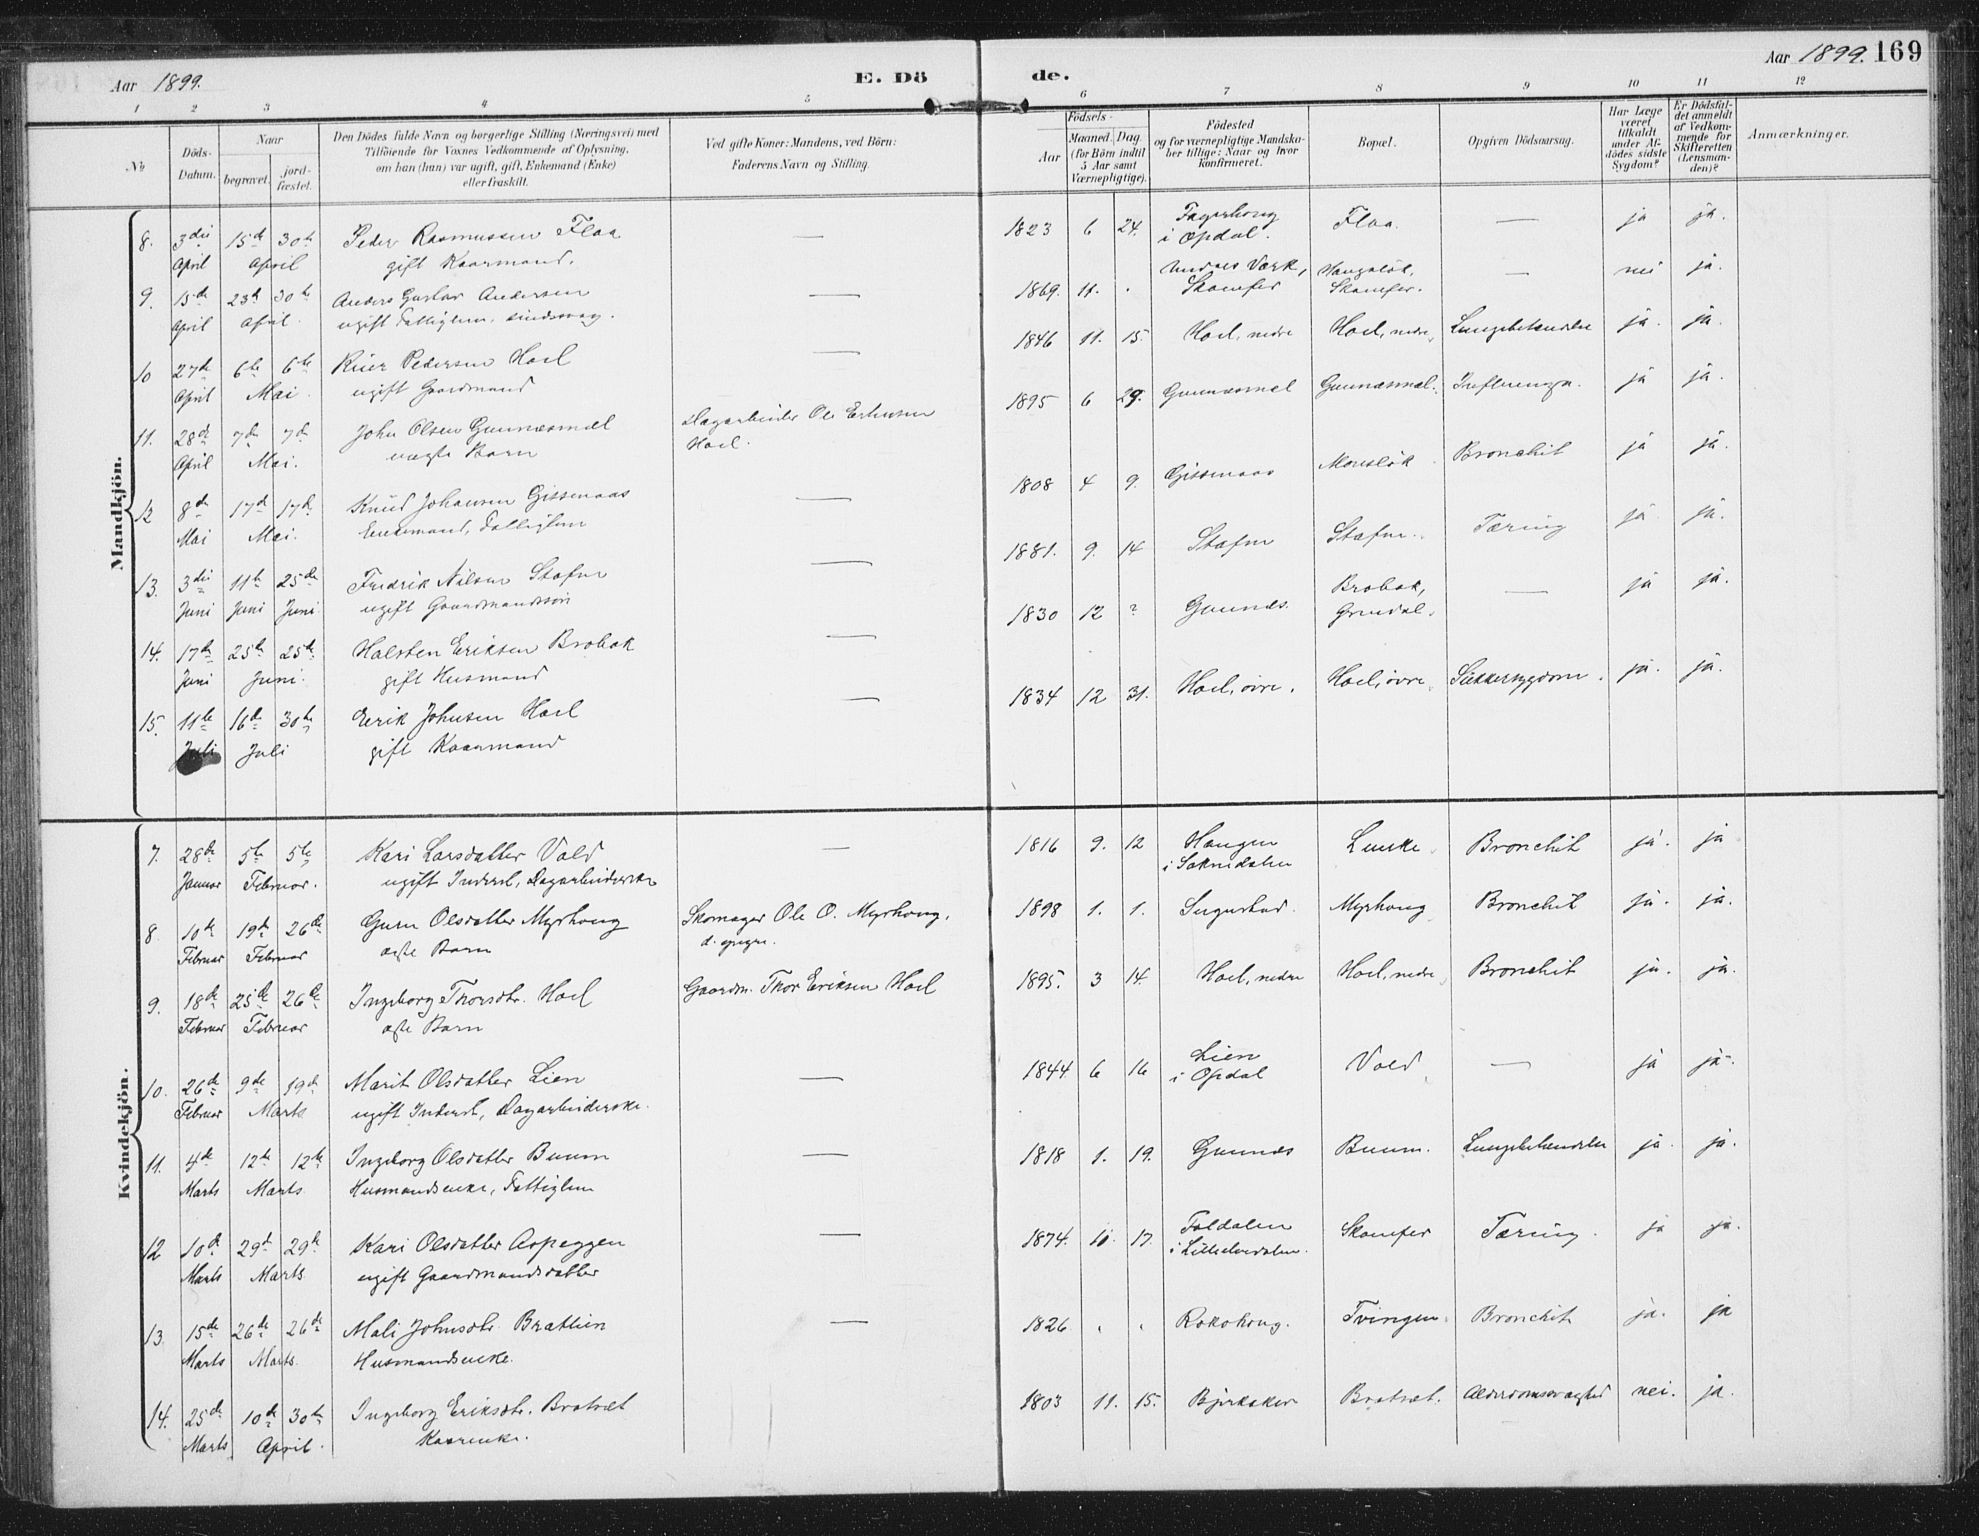 Aar 1899.
E. Dö
de.
Aar 1899. 169
1 2 3 4 5 6 7 8 9 10 11 12
No
Döds-Datum.
Naar
begravet.
jordfæstet.
Den Dödes fulde Navn og borgerlige Stilling (Næringsvei) med
Tilföiende for Voxnes Vedkommende af Oplysning,
om han (hun) var ugift, gift, Enkemand (Enke)
eller fraskilt.
Ved gifte Koner: Mandens, ved Börn:
Faderens Navn og Stilling.
Födsels-
Aar
Maaned. Dag.
(for Börn indtil
5 Aar samt
Værnepligtige).
Födested
og for værnepligtige Mandskaber
tillige: Naar og hvor
konfirmeret.
Bopæl.
Opgiven Dödsaarsag.
Har Læge
været
tilkaldt
under Afdödes
sidste
Sygdom?
Er Dödsfaldet
anmeldt
af Vedkommende
for
Skifteretten
(Lensmanden)?
Anmærkninger.
Mandkjön.
8. 3die April 15de 30te April Peder Rasmussen Flaa — 1823 6 24. Fagerhoug i Opdal. Flaa. — ja ja.
gift Kaarmand.
9. 15de April 23de 30te April. Anders Gustav Andersen — 1869. 11. . Værk, Skamfer Skamfer. — nei ja.
ugift Fattiglem, sindssvag.
10 27de April 6te 6te Mai. Pedersen Hoel — 1846 11. 15. Hoel, nedre Hoel, nedre, Lungebetændelse ja. ja.
ugift Gaardmand
11. 28de April 7de 7de Mai. John Olsen Gunnæsmæl Dagarbeider Ole 1895 6 29. Gunnæsmæl Gunnæsmæl. Influenza. ja ja.
uægte Barn Hoel.
12 8de Mai 17de 17de Mai. Knud Johansen Gissenaas — 1808 4 9. Gissenaas Bronchit ja ja.
Enkemand, Fattiglem
13. 3die Juni 11te Juni 25de Juni Fredrik Nilsen Stafne — 1881. 9. 14 Stafne Stafne. Tæring ja ja.
ugift Gaardmandssön
14. 17de Juni 25de 25de Juni. Halsten Eriksen Brobak — 1830 12 ? Gunnæs. Brobak, Grindal. — ja ja.
gift Husmand
15. 11te Juli 16de 30te Juli Eerik Johnsen Hoel — 1834 12 31. Hoel, övre. Hoel, övre, Sukkersygdom. ja. ja.
gift Kaarmand
Kvindekjön.
7. 28de Januar 5te 5te Februar. Kari Larsdatter Vold — 1816 9. 12 Haugen i Soknedalen Bronchit ja. ja
ugift Inderst, Dagarbeiderske
8. 10de Februar 19de 26de Februar Guru Olsdatter Myrhoug Skomager Ole O. Myrhoug, 1898 1. 1. Myrhoug Bronchit ja. ja.
ægte Barn d. yngre.
9. 18de Februar 25de 26de Februar Ingeborg Thorsdtr. Hoel Gaardm. Thor Eriksen Hoel 1895. 3 14. Hoel, nedre Hoel, nedre, Bronchit ja. ja.
ægte Barn
10. 26de Februar 9de 19de Marts Marit Olsdatter Lien — 1844 6 16 Lien i Opdal Vold — ja ja.
ugift Inderst, Dagarbeiderske.
11. 4de Marts 12te 12te Marts. Ingeborg Olsdatter Buum — 1818 1. 19. Gunnæs Buum. Lungebetændelse ja. ja.
Husmandsenke, Fattiglem
12 10de Marts 29de 29de Marts Kari Olsdatter Aspeggen — 1874. 10. 17. Foldalen i Lilleelvedalen. Skamfer Tæring. ja ja.
ugift Gaardmandsdatter
13. 15de Marts 26de 26de Marts. Mali Johnsdtr. Brattlien — 1826 . . Rokohoug. Tvingen. Bronchit ja. ja
Husmandsenke.
14. 25de Marts 10de 30te April. Ingeborg Eriksdtr. Bratset 1803 11. 15. Bjerkaker Bratset. Alderdomssvaghed nei. ja.
Kaarenke.